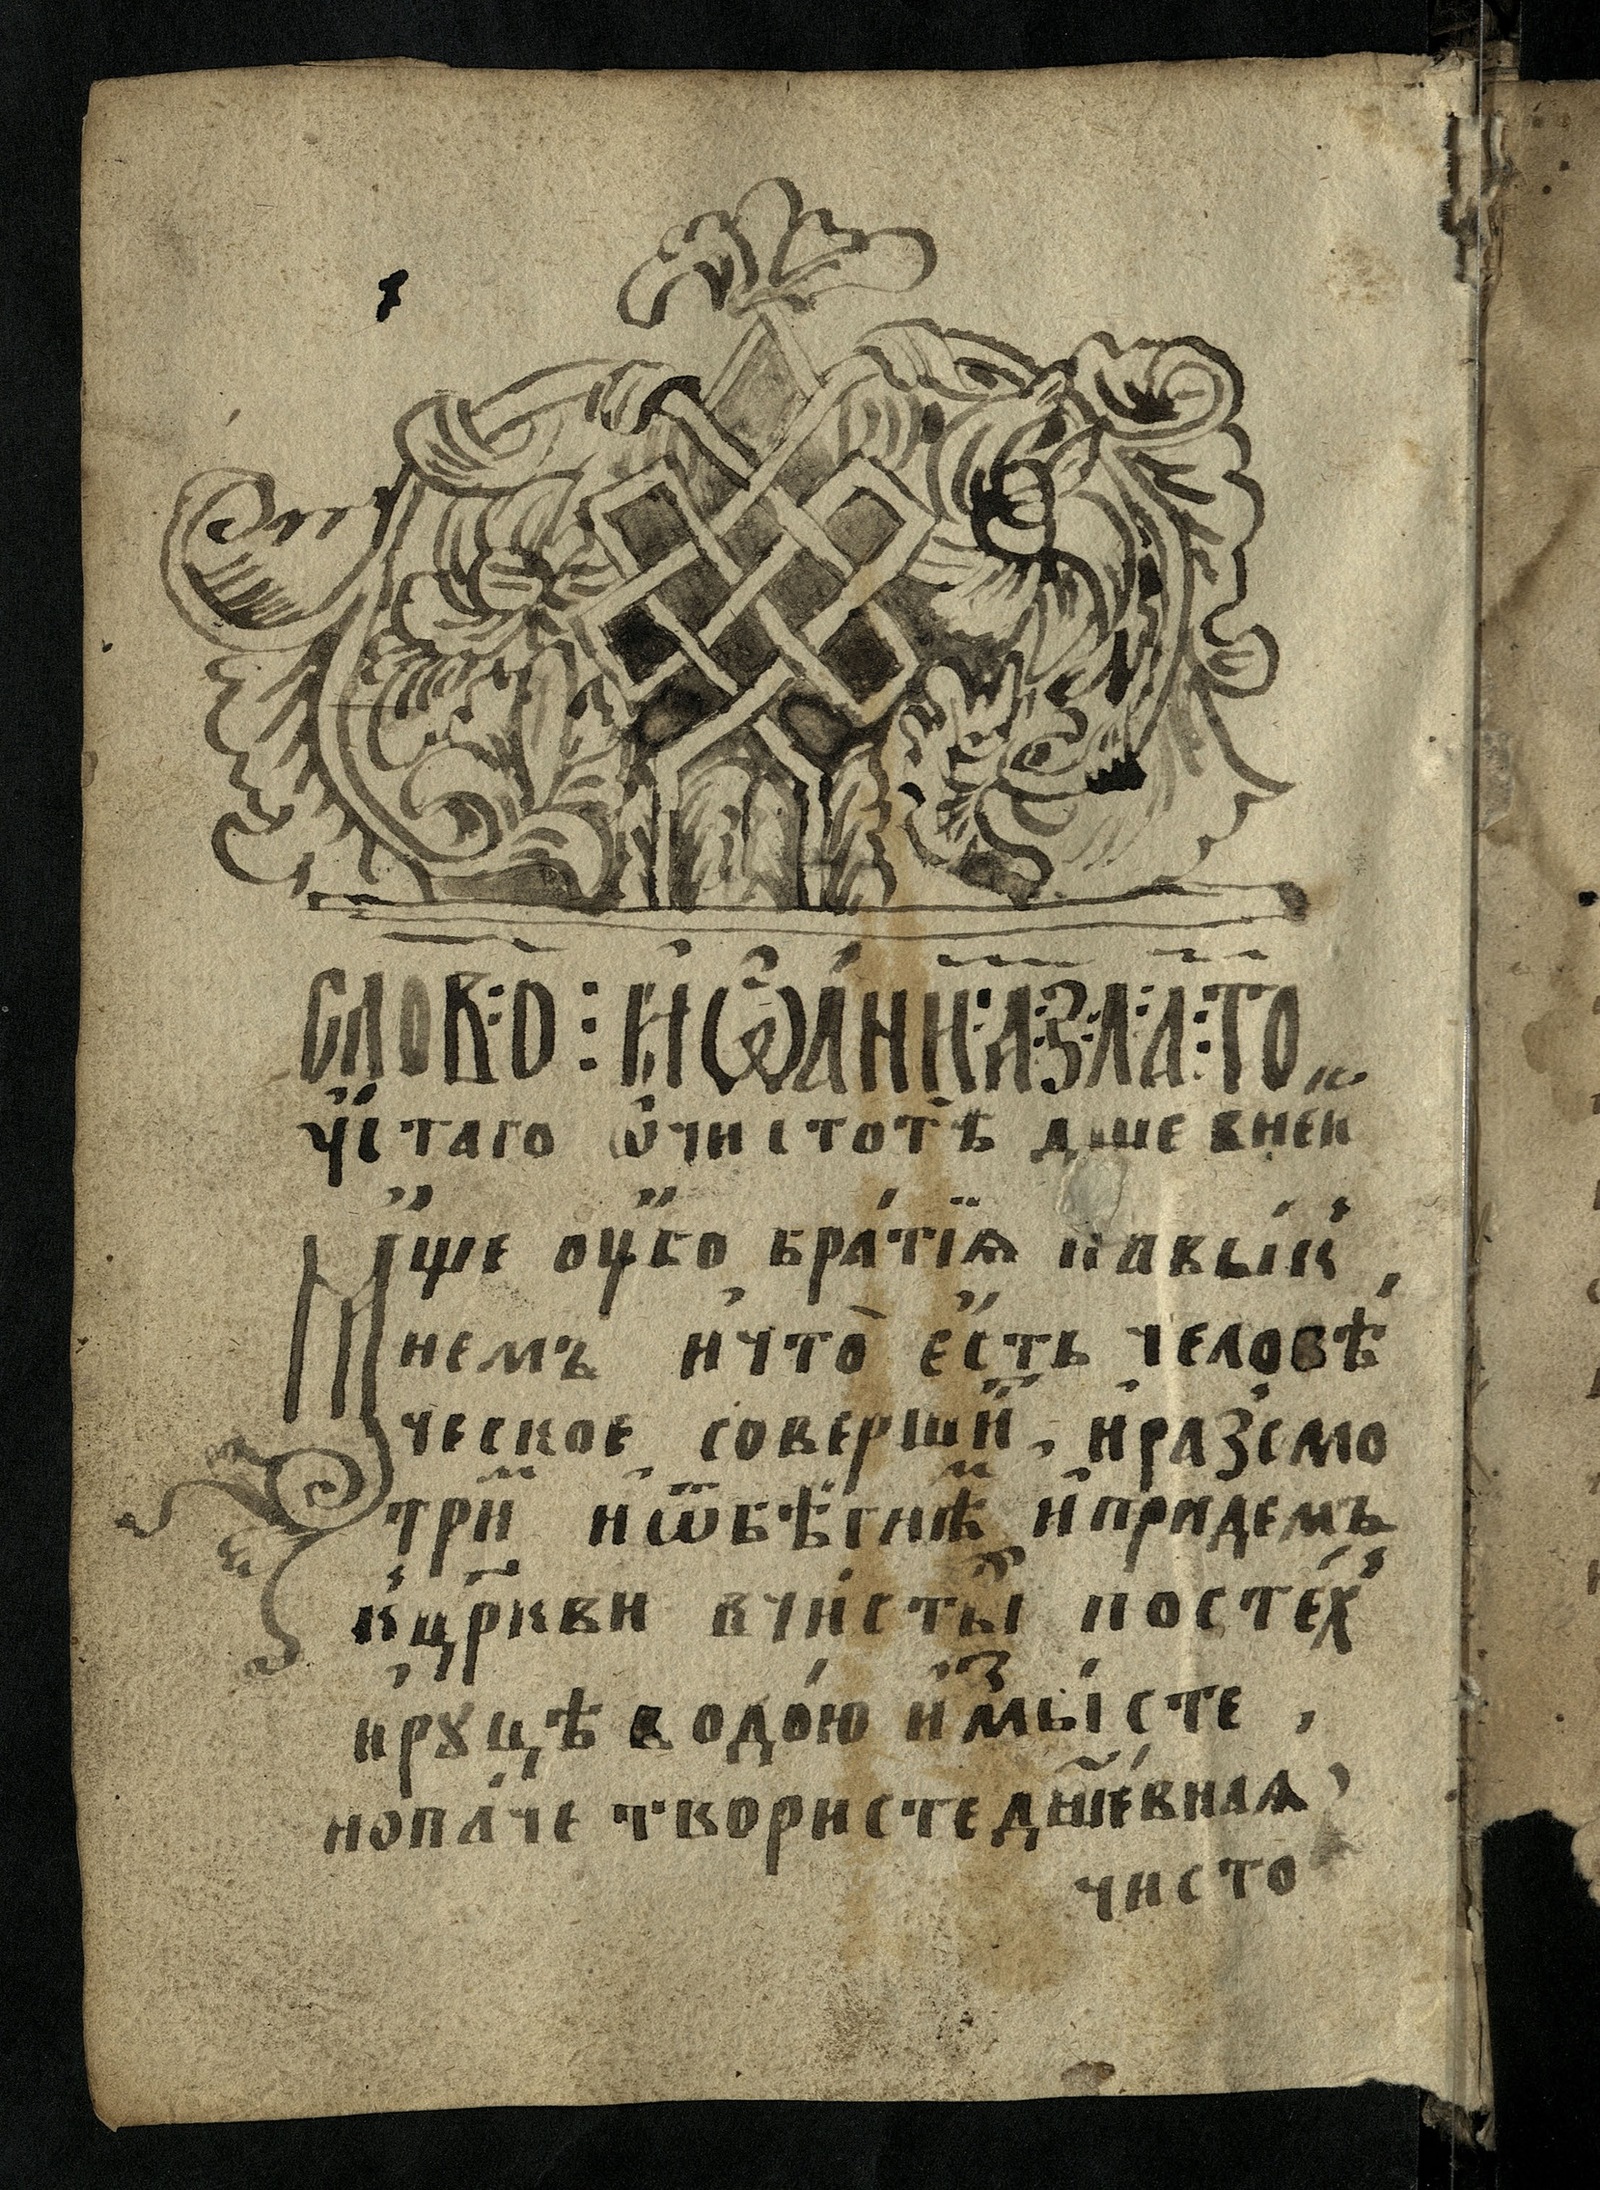 СЛОВ:О: И҆Ѡ҆А́НН:А:З:Л:А:ТО
ꙋ҆́стаго ѡ҆чистотѣ дшевней
Ище оу҆́бо бра́тїѧ навы́к
немъ и҆что̀ є҆́сть человѣ
ческое соверши̑, и҆разсмо
три̑ и҆ѿбѣ́гнѣ̑ и҆придемъ
к҆цр҃кви вчи́сты̑ посте́х
ирꙋцѣ водо́ю и҆змы́сте,
нопа́че твористе дш҃е́внаѧ
чисто